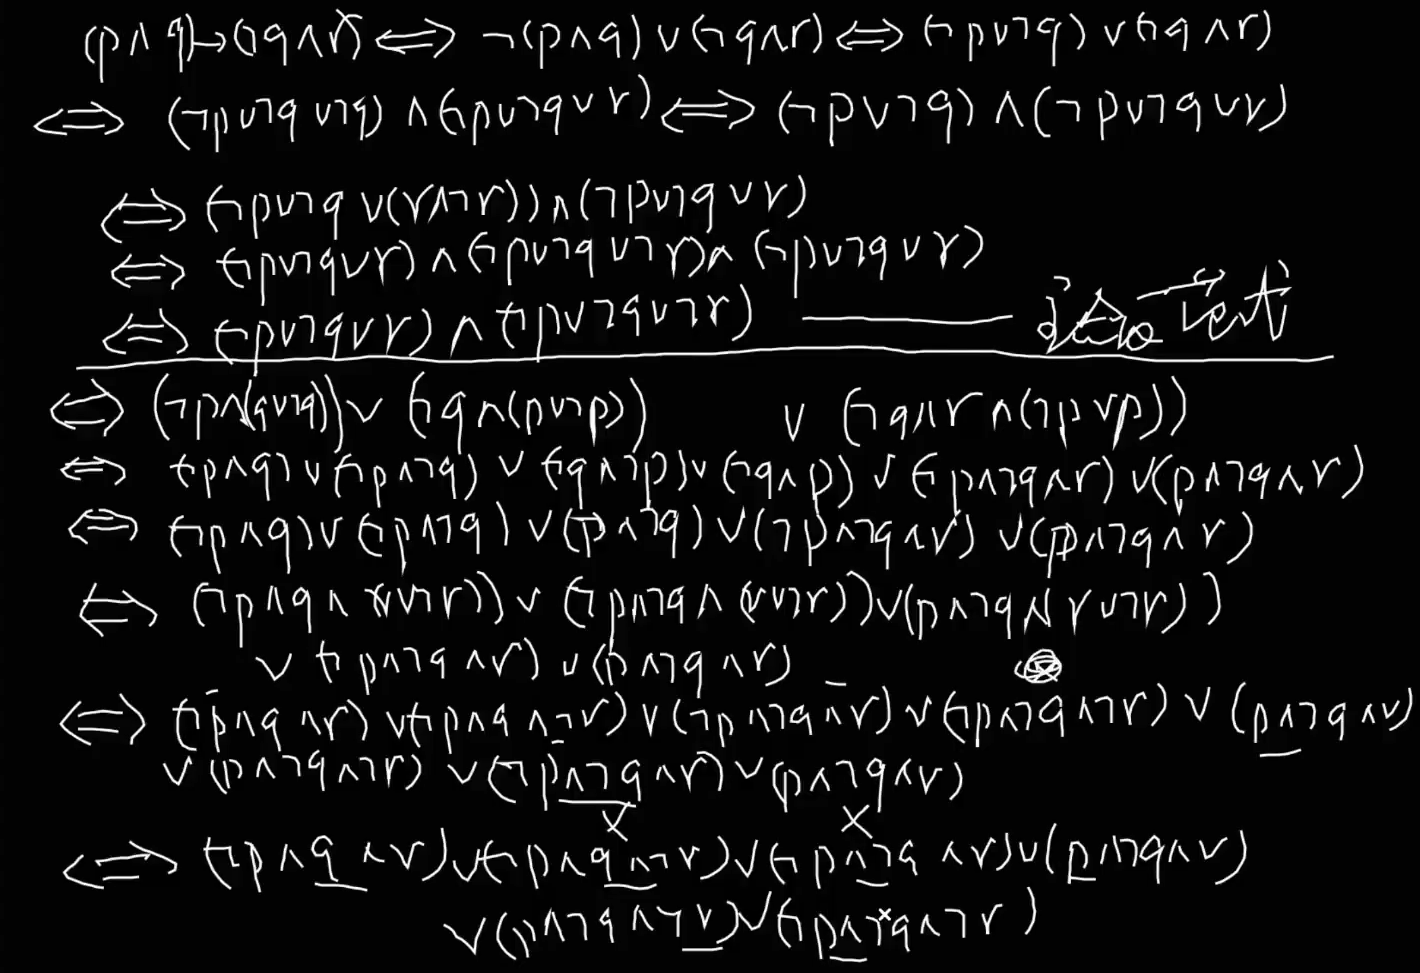 (p∧q)→(¬q∧r) ⟺ ¬(p∧q)∨(¬q∧r) ⟺ (¬p∨¬q)∨(¬q∧r)
⟺ (¬p∨¬q∨¬q)∧(¬p∨¬q∨r) ⟺ (¬p∨¬q)∧(¬p∨¬q∨r)
⟺ (¬p∨¬q∨(r∧¬r))∧(¬p∨¬q∨r)
⟺ (¬p∨¬q∨r)∧(¬p∨¬q∨¬r)∧(¬p∨¬q∨r)
⟺ (¬p∨¬q∨r)∧(¬p∨¬q∨¬r)
⟺ (¬p∧(q∨¬q))∨(¬q∧(p∨¬p)) ∨(¬q∧r∧(¬p∨p))
⟺ (¬p∧q)∨(¬p∧¬q)∨(¬q∧¬p)∨(¬q∧p)∨(¬p∧¬q∧r)∨(p∧¬q∧r)
⟺ (¬p∧q)∨(¬p∧¬q)∨(p∧¬q)∨(¬p∧¬q∧r)∨(p∧¬q∧r)
⟺ (¬p∧q∧(r∨¬r))∨(¬p∧¬q∧(r∨¬r))∨(p∧¬q∧(r∨¬r))
∨(¬p∧¬q∧r)∨(p∧¬q∧r)
⟺ (¬p∧q∧r)∨(¬p∧q∧¬r)∨(¬p∧¬q∧r)∨(¬p∧¬q∧¬r)∨(p∧¬q∧r)
∨(p∧¬q∧¬r)∨(¬p∧¬q∧r)∨(p∧¬q∧r)
⟺ (¬p∧q∧r)∨(¬p∧q∧¬r)∨(¬p∧¬q∧r)∨(p∧¬q∧r)
∨(p∧¬q∧¬r)∨(¬p∧¬q∧¬r)